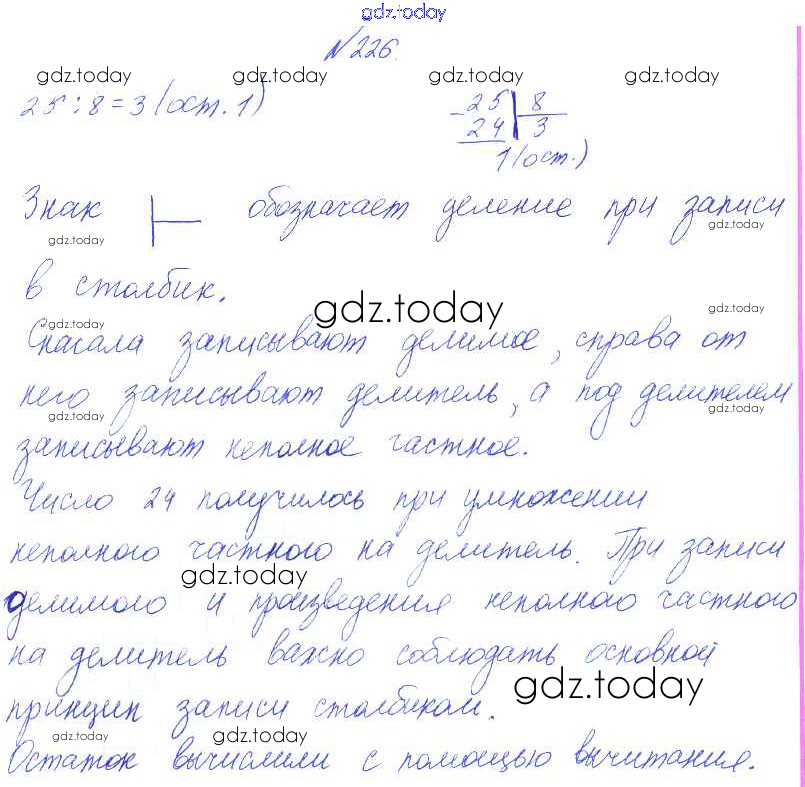 gdz.today
№226.
gdz.today gdz.today gdz.today gdz.today
25 : 8 = 3 (ост. 1)
- 25 | 8
24 | 3
1 (ост.)
Знак ⊢ обозначает деление при записи
gdz.today gdz.today
в столбик.
gdz.today gdz.today gdz.today
Сначала записывают делимое, справа от
него записывают делитель, а под делителем
gdz.today gdz.today
записывают неполное частное.
Число 24 получилось при умножении
неполного частного на делитель. При записи
gdz.today
делимого и произведения неполного частного
на делитель важно соблюдать основной
gdz.today
принцип записи столбиком.
gdz.today
Остаток вычислили с помощью вычитания.